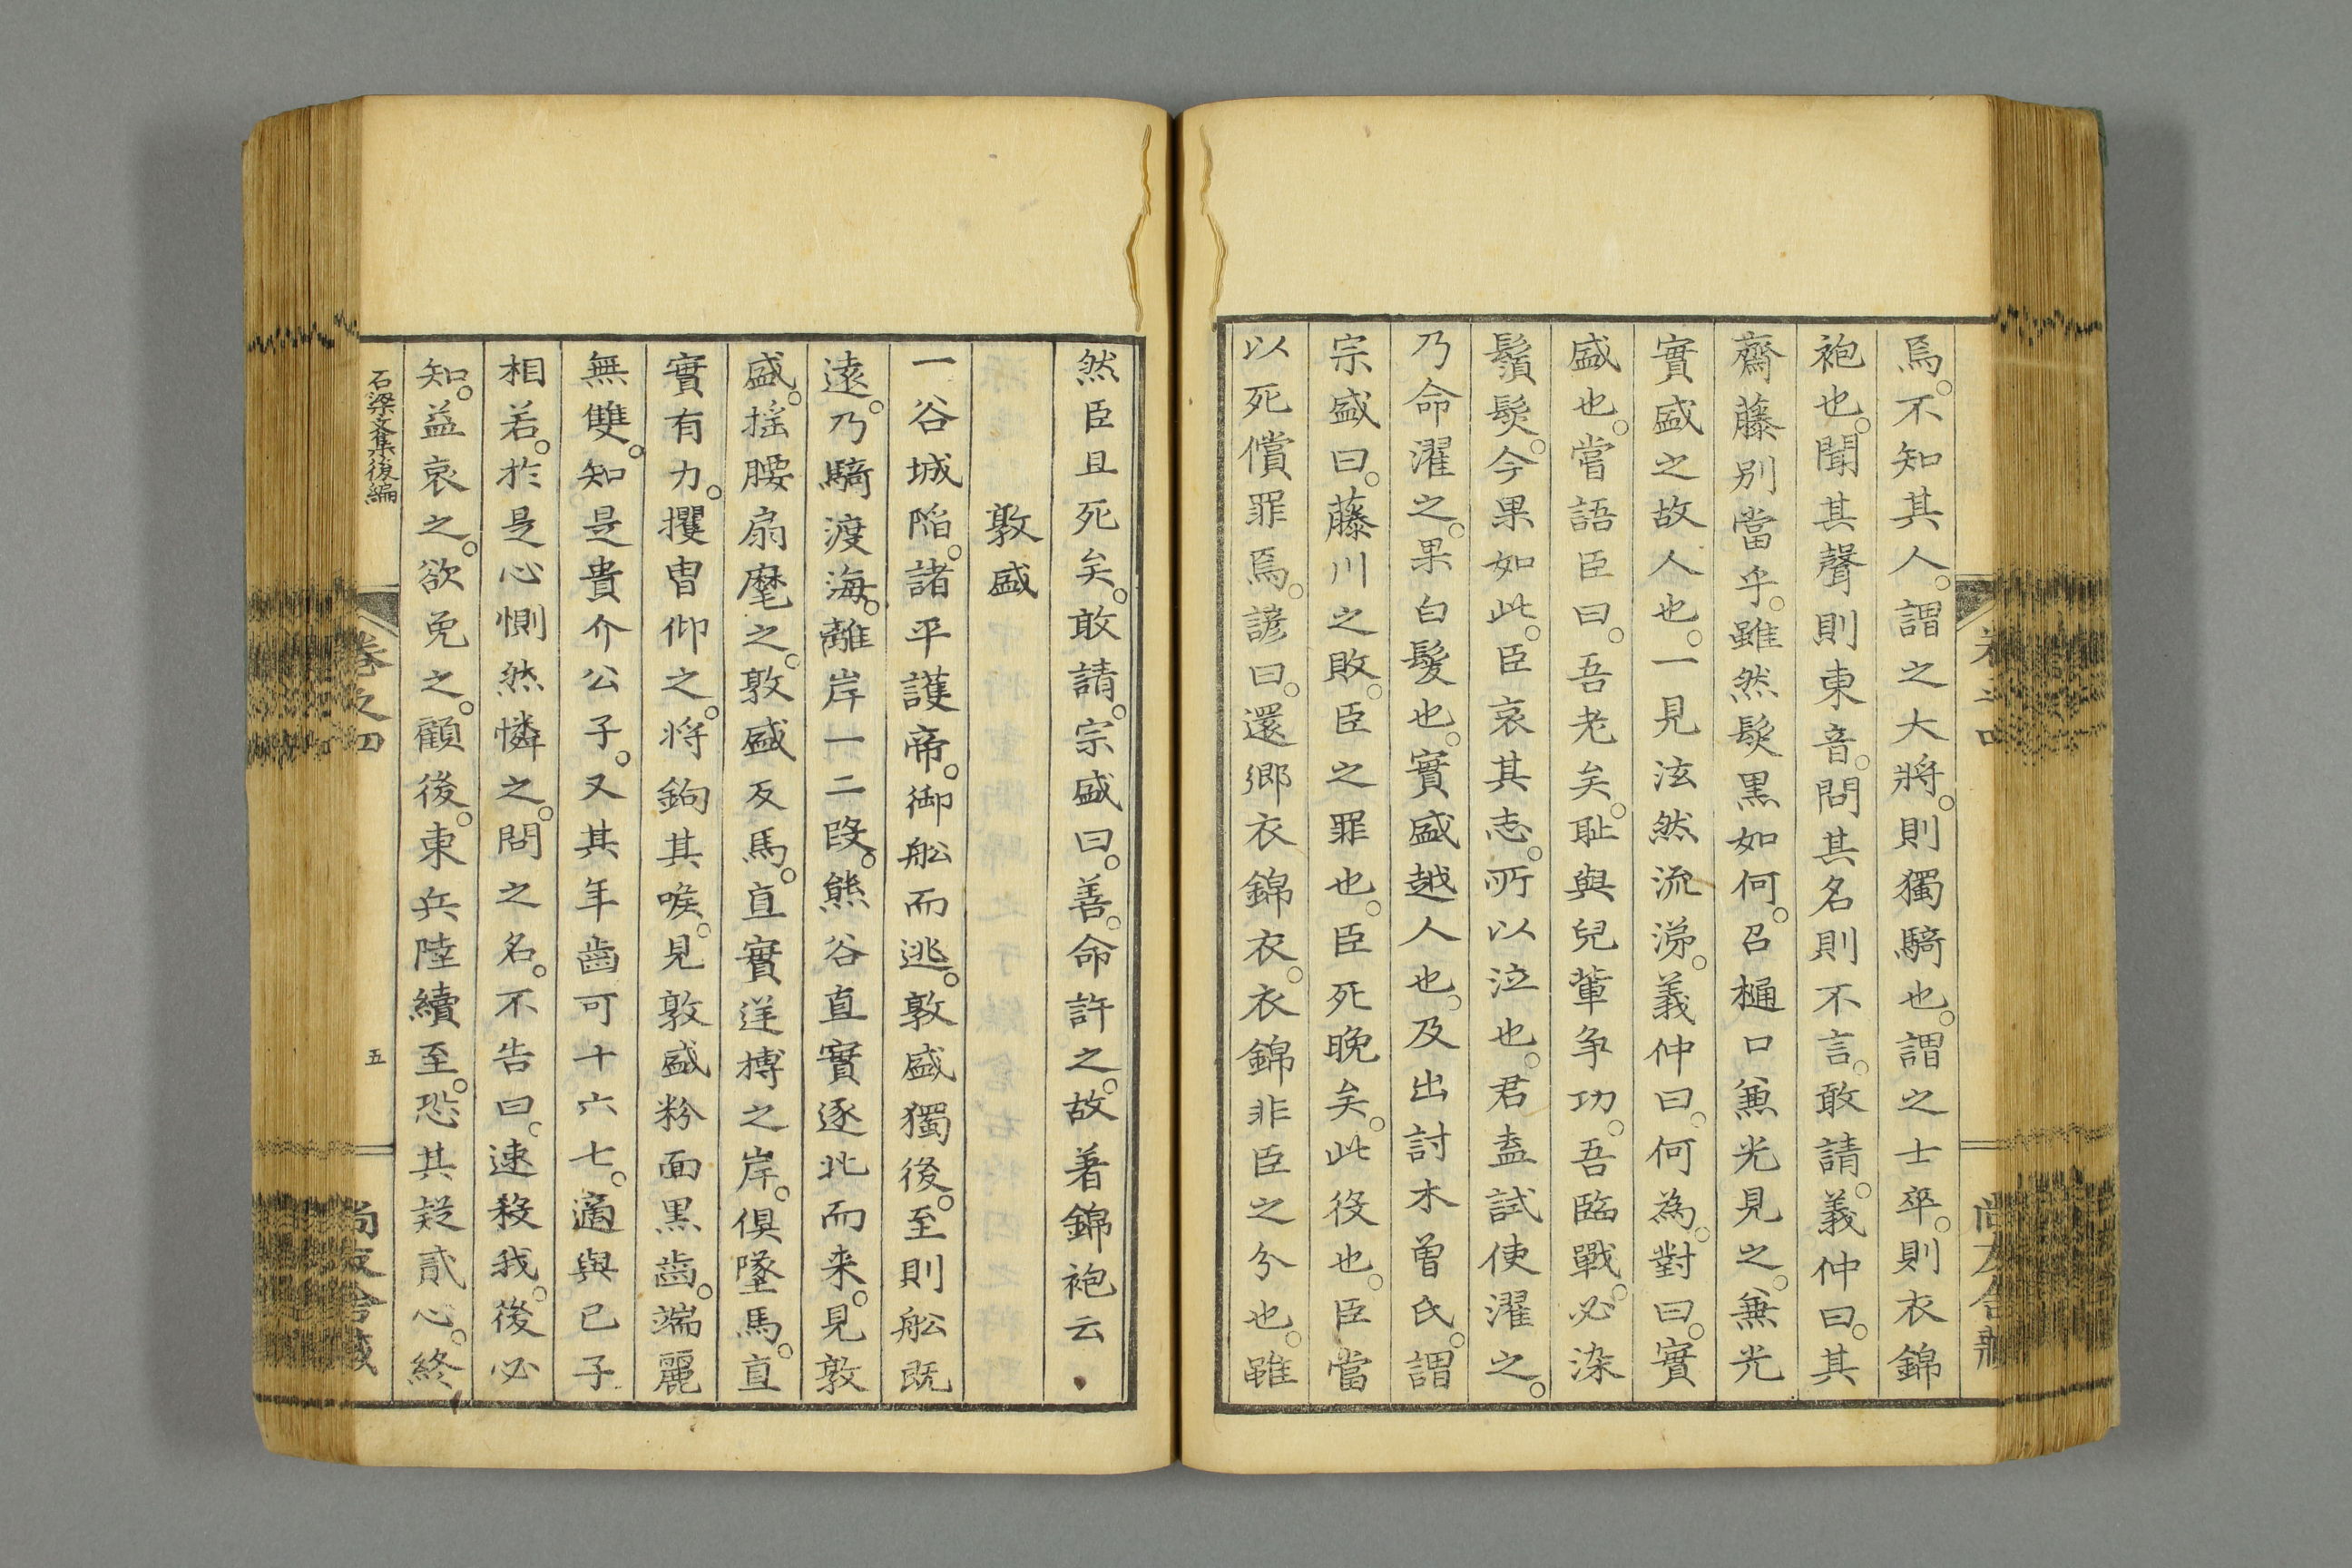 焉。不知其人。謂之大將。則獨騎也。謂之士卒。則衣錦
袍也。聞其聲則東音。問其名則不言。敢請。義仲曰。其
齋藤別當乎。雖然髮黑如何。召樋口兼光見之。兼光
實盛之故人也。一見泫然流涕。義仲曰。何為。對曰。實
盛也。嘗語臣曰。吾老矣。耻與兒輩争功。吾臨戰。必染
鬚髮。今果如此。臣哀其志。所以泣也。君盍試使濯之。
乃命濯之。果白髮也。實盛越人也。及出討木曽氏。謂
宗盛曰。藤川之敗。臣之罪也。臣死晚矣。此役也。臣當
以死償罪焉。諺曰。還郷衣錦衣。衣錦非臣之分也。雖
然臣且死矣。敢請。宗盛曰。善。命許之。故著錦袍云
敦盛
一谷城陷。諸平護帝。御舩而逃。敦盛獨後。至則舩既
遠。乃騎渡海。離岸一二段。熊谷直實逐北而来。見敦
盛。揺腰扇麾之。敦盛反馬。直實逆搏之岸。俱墜馬。直
實有力。攫胄仰之。將鉤其喉。見敦盛粉面黒齒。端麗
無雙。知是貴介公子。又其年齒可十六七。適與己子
相若。於是心惻然憐之。問之名。不告曰。速殺我。後必
知。益哀之。欲免之。顧後。東兵陸續至。恐其疑貳心。終
石梁文集後編
卷之四
五
尚友舎藏